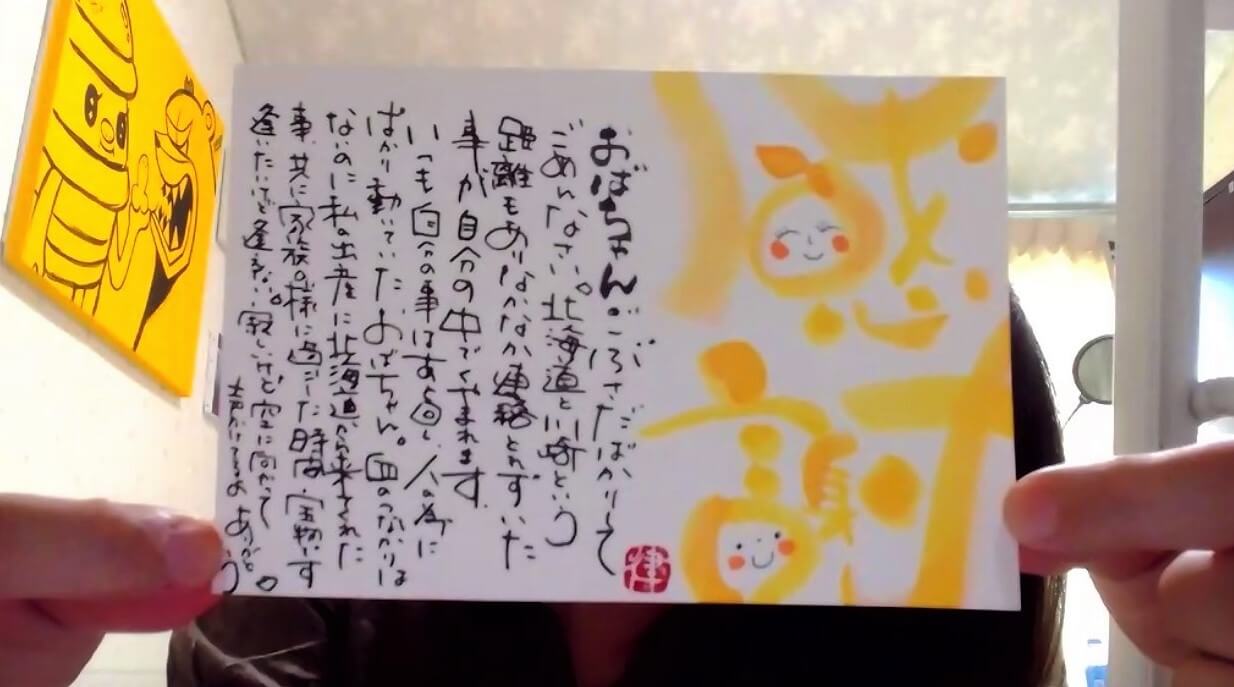 感謝
おばちゃん。ごぶさたばかりして
ごめんなさい。北海道と川崎という
距離もありなかなか連絡とれずいた
事が自分の中でくやまれます。
いつも自分の事はあと回し、人の為に
ばかり動いていた、おばちゃん。血のつながりは
ないのに私の出産に北海道から来てくれた
事、共に家族の様に過ごした時間、宝物です
逢いたいけど逢えない。寂しいけど空に向かって
声かけてるよ ありがとう。
律